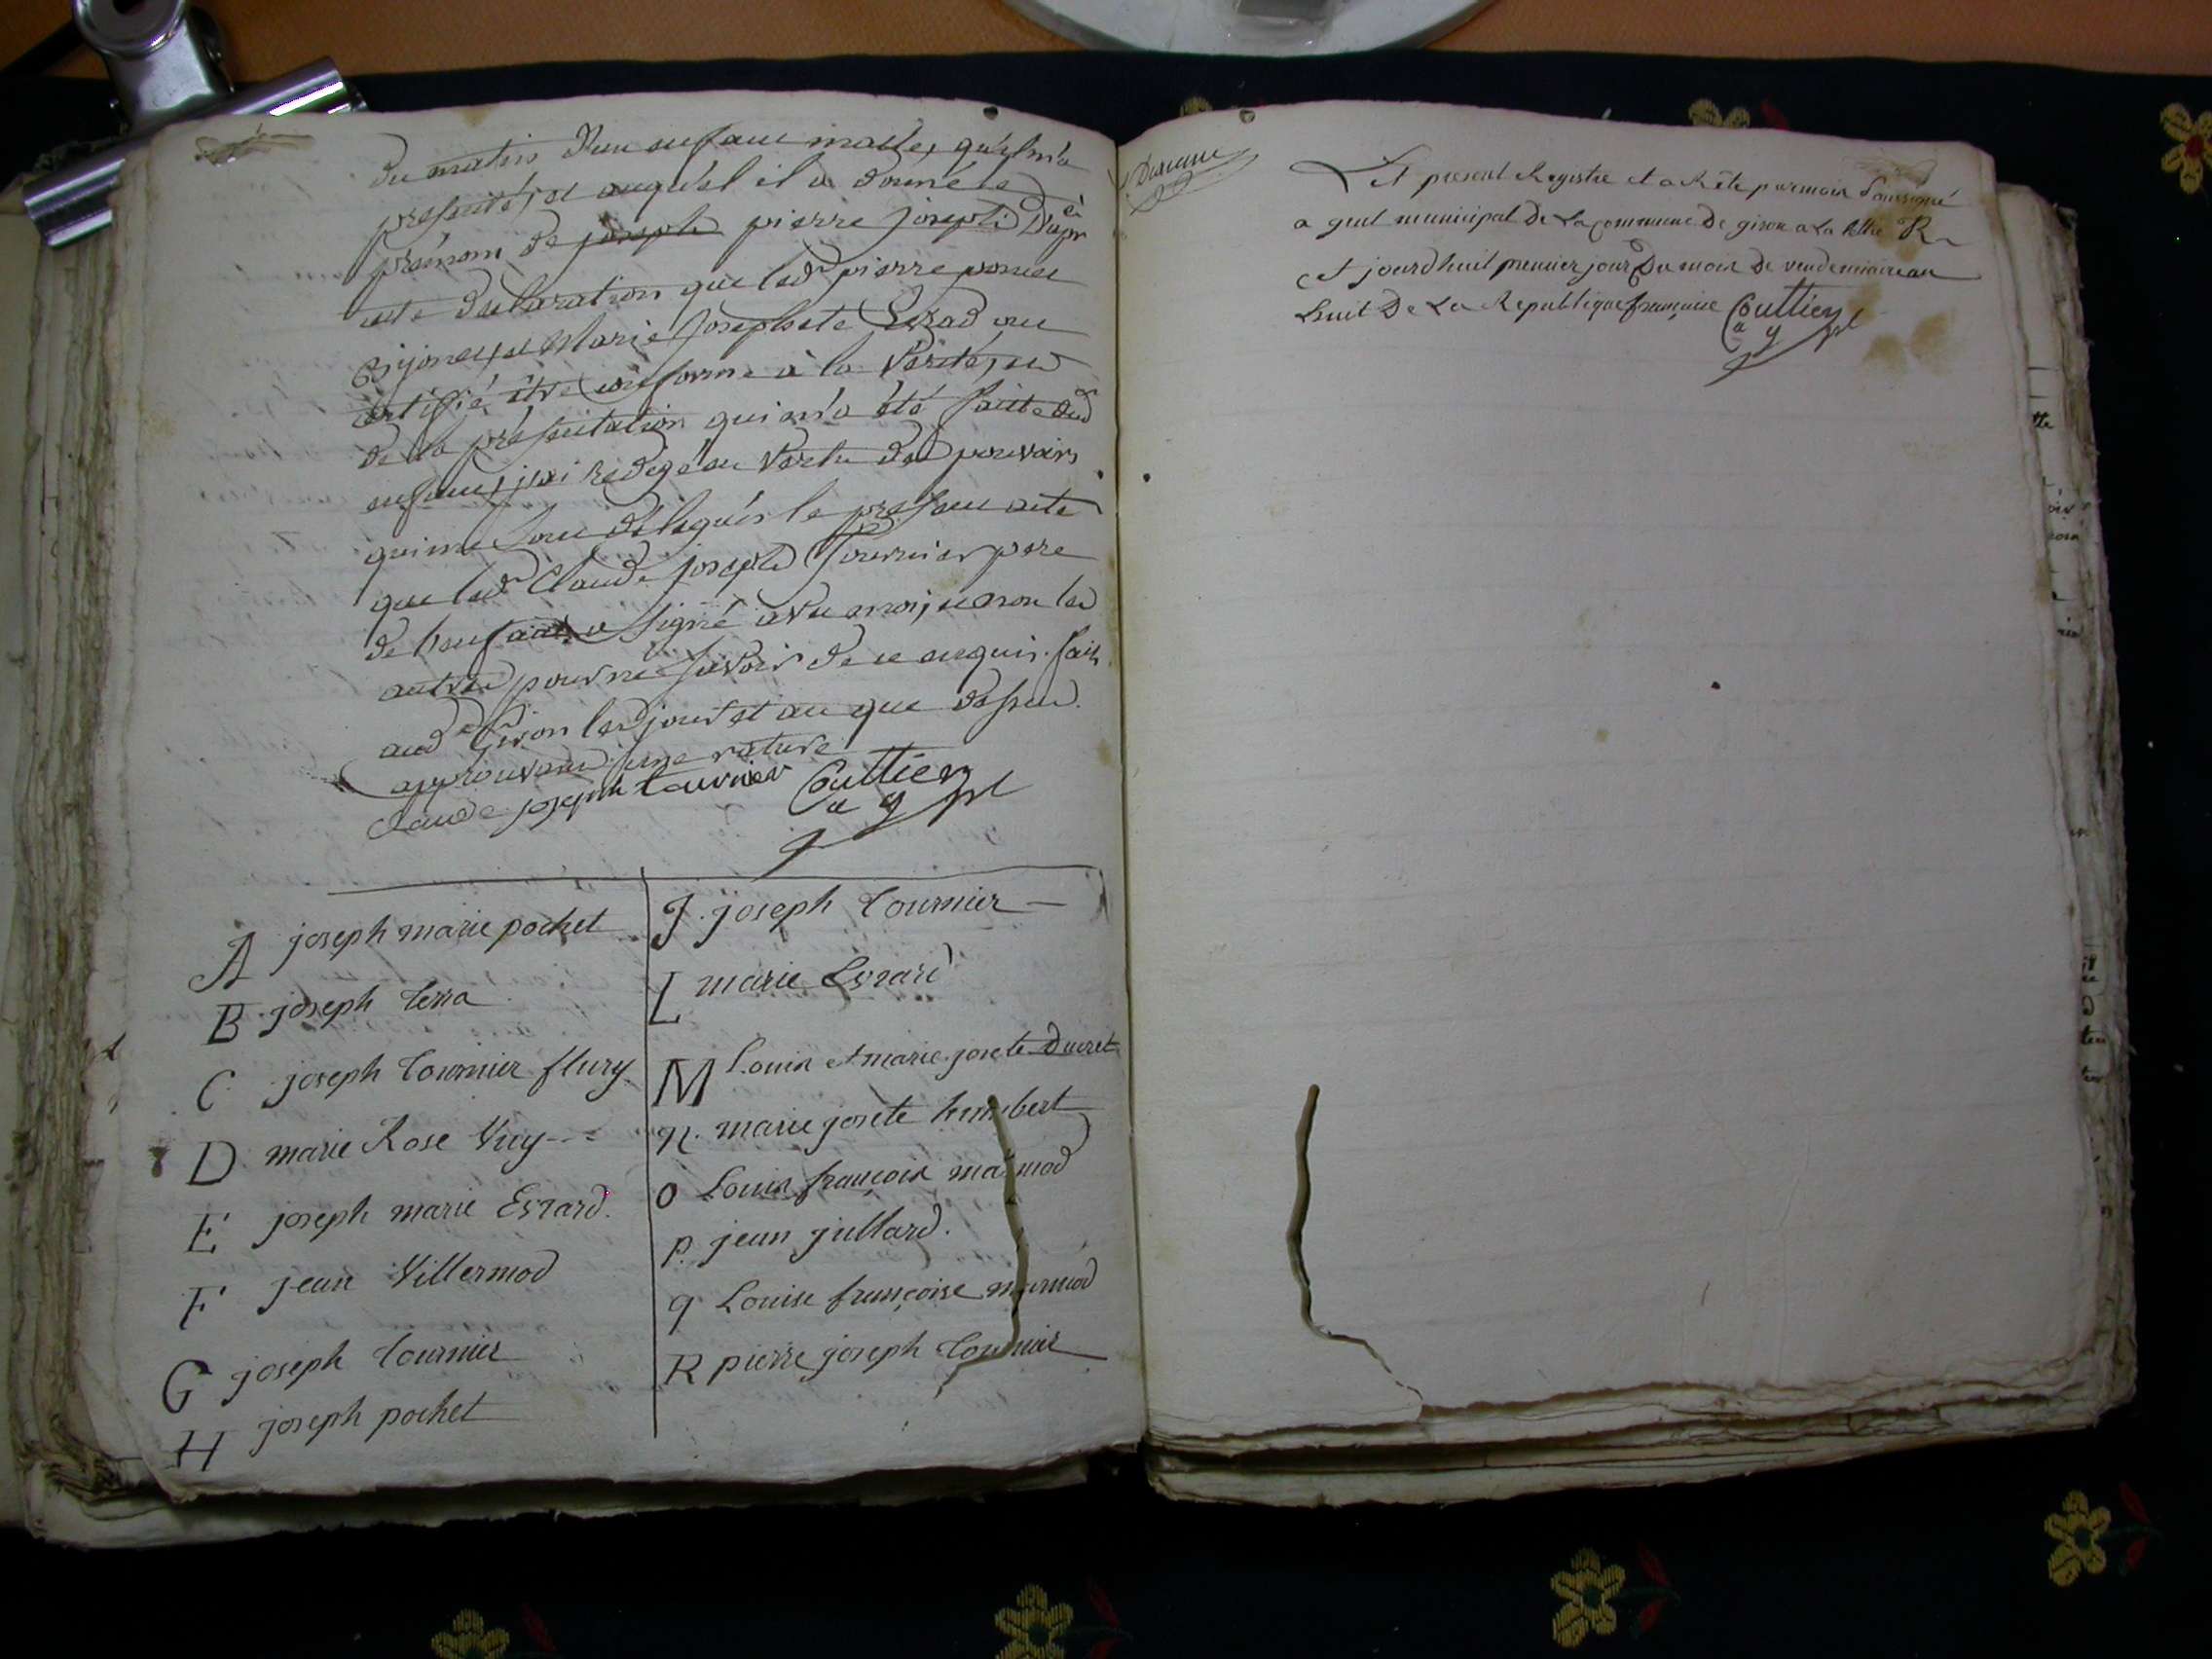 du matin d'un enfant masle, qu'il m'a
presenté, et auquel il a donné le
prénom de joseph pierre joseph D'apr ès
cete declaration que led pierre poncet
Bijonet, et Marie Josephete Evrad ont
certifié être conforme à la Vérité, et
de la présentation qui m'a été faitte dud
enfant, j'ai Redigé en Vertu des pouvoirs
qui me sont délégués le présent acte
que led Claude joseph Tournier pere
de l'enfant a signé avec moi, et non les
autres pour ne savoir de ce enquis. fait
aud Giron les jour et an que dessus.
approuvant une rature
Claude joseph tournier Coultier
a g pl
A joseph marie pochet
B joseph terra
C joseph tournier flury
D marie Rose Vuy
E joseph marie Evrard.
F jean Villermod
G joseph tournier
H joseph pochet
J. joseph tournier
L marie Evrard
M Louis et marie josete Ducret
N. marie josete humbert
O Louis françois marmod
P. jean jullard.
q Louise françoise marmod
R pierre joseph tournier
Ducume
Let present Registre et a Rête par moi soussigné
a gent municipal de La commune de giron a La lettre R
cet jourdhuit premier jour Du mois de vendemiaire an
huit De La Republique française Coultier
a g pl